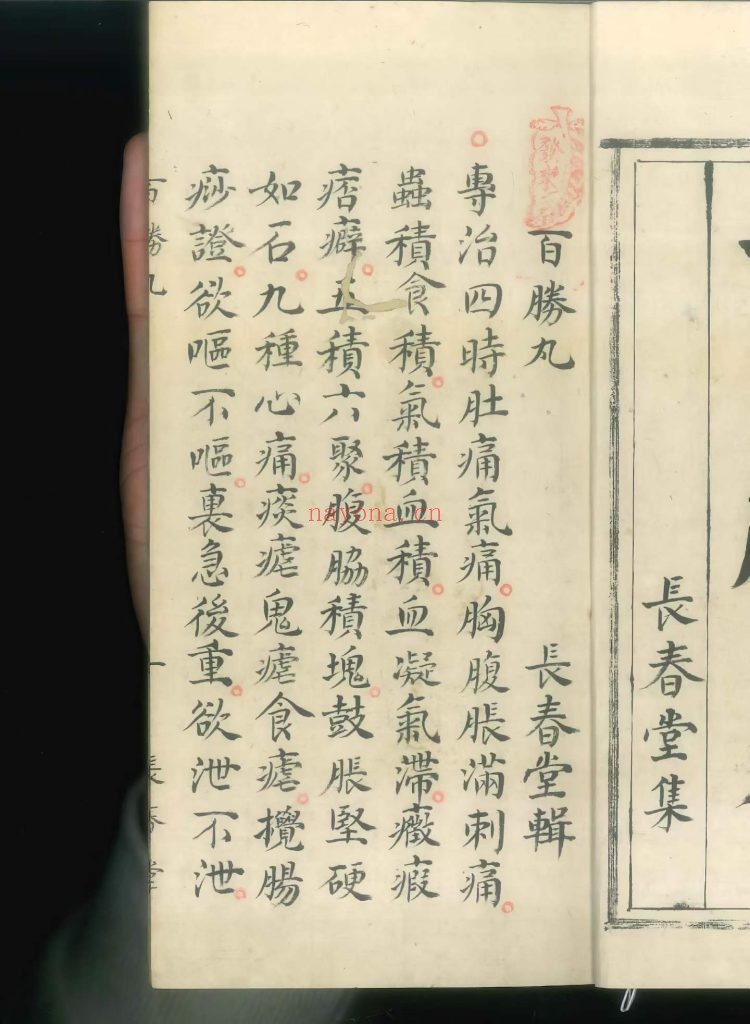 長春堂集
百勝丸 長春堂輯
專治四時肚痛氣痛。胸腹脹滿刺痛。
蟲積食積。氣積血積。血凝氣滯。癥瘕
痞癖。五積六聚。腹脇積塊。鼓脹堅硬
如石。九種心痛。痰瘧鬼瘧食瘧。攪腸
痧證。欲嘔不嘔。裏急後重。欲泄不泄。
百勝丸 一 長春堂
nayona.cn